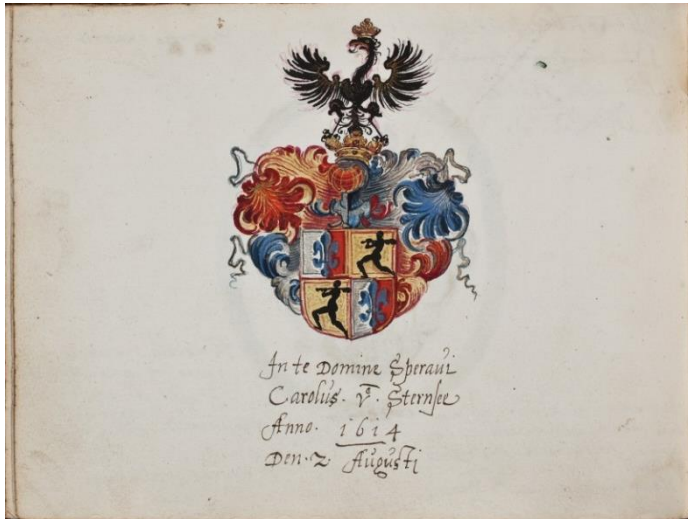 In te Domine Speravi
Carolus. vͦ. Sternsee
Anno. 1614
Den. 2 Augusti